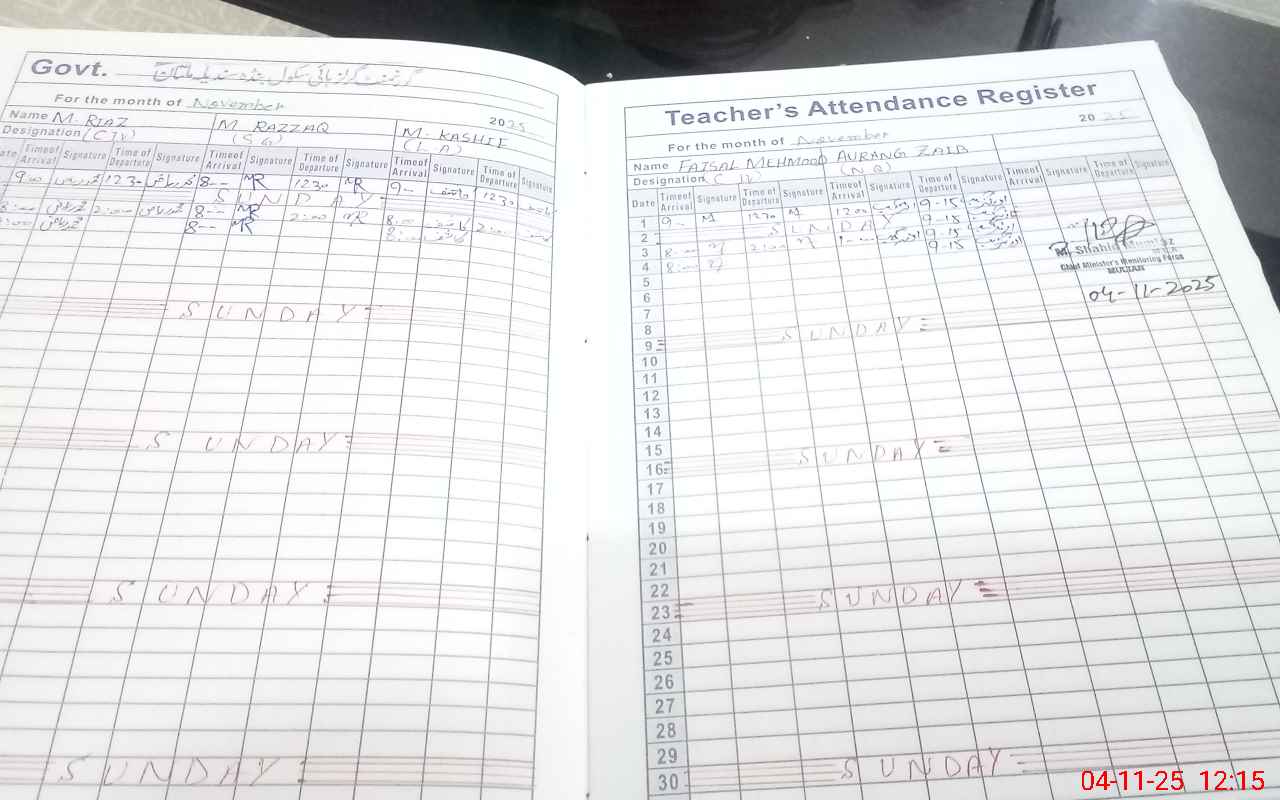 Govt. گورنمنٹ گرلز ہائی سکول بنڈہ سندیلہ ملتان
For the month of November 2025
Name M. RIAZ M RAZZAQ M. KASHIF
Designation (C IV) (S G) (L A)
Date Timeof Arrival Signature Time of Departure Signature Timeof Arrival Signature Time of Departure Signature Timeof Arrival Signature Time of Departure Signature
9:00 محمد ریاض 12 30 محمد ریاض 8-- MR 12 30 MR 9-- کاشف 12 30 کاشف
S U N D A Y
8:00 محمد ریاض 2:00 محمد ریاض 8-- MR 2:00 MR 8:00 کاشف 2:00
8:00 محمد ریاض 8-- MR 8:00 کاشف
S U N D A Y
S U N D A Y
S U N D A Y
S U N D A Y
Teacher's Attendance Register
For the month of November 2025
Name FAISAL MEHMOOD AURANG ZAIB
Designation (C IV) (N Q)
Date Timeof Arrival Signature Time of Departure Signature Timeof Arrival Signature Time of Departure Signature Timeof Arrival Signature Time of Departure Signature
1 9-- 12 30 12 00 اورنگزیب 9-15 اورنگزیب
2 S U N D A Y 9-15 اورنگزیب
3 8:00 2:00 اورنگزیب 9-15 اورنگزیب
4 8:00
5
6
7
8
9 S U N D A Y
10
11
12
13
14
15
16 S U N D A Y
17
18
19
20
21
22
23 S U N D A Y
24
25
26
27
28
29
30 S U N D A Y
Chief Minister's Monitoring Force
MULTAN
04-11-2025
04-11-25 12:15